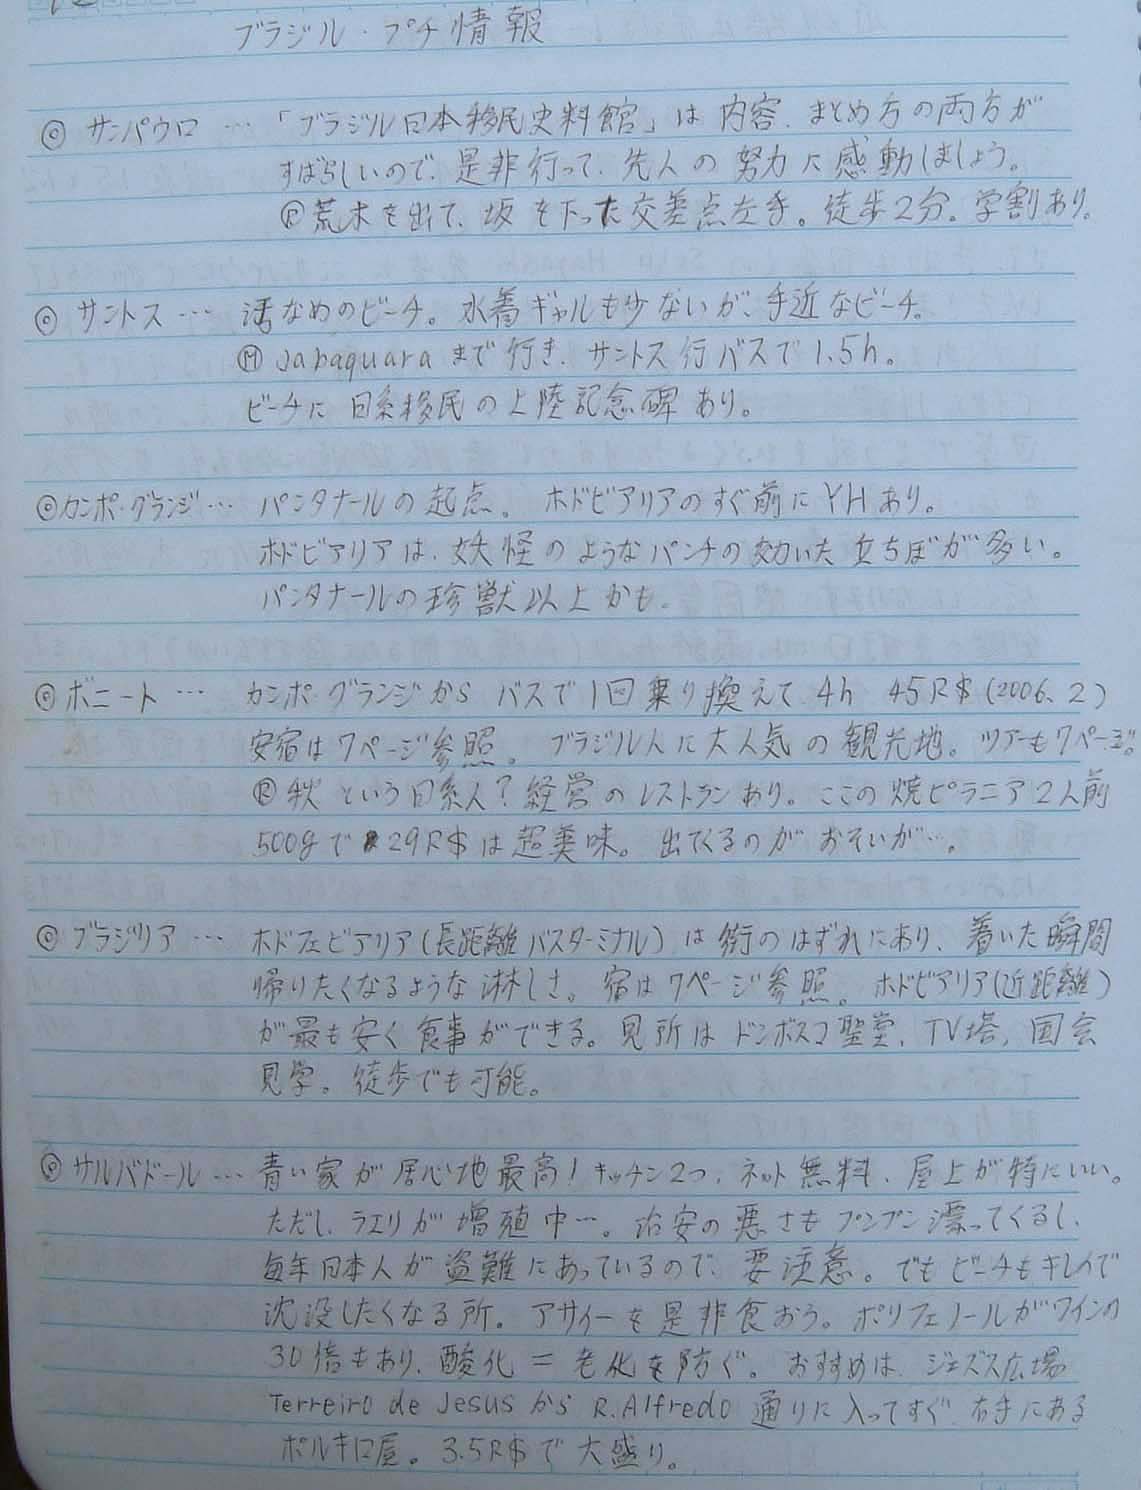 ブラジル・プチ情報
◎ サンパウロ … 「ブラジル日本移民史料館」は内容、まとめ方の両方が
すばらしいので、是非行って、先人の努力に感動しましょう。
Ⓟ荒木を出て、坂を下った交差点左手。徒歩2分。学割あり。
◎ サントス … 活なめのビーチ。水着ギャルも少ないが、手近なビーチ。
Ⓜ Jabaquaraまで行き、サントス行バスで1.5h。
ビーチに日系移民の上陸記念碑あり。
◎カンポ・グランジ… パンタナールの起点。ホドビアリアのすぐ前にYHあり。
ホドビアリアは、妖怪のようなパンチの効いた立ちぼが多い。
パンタナールの珍獣以上かも。
◎ ボニート … カンポ・グランジからバスで1回乗り換えて4h 45R$(2006、2)
安宿は7ページ参照。ブラジル人に大人気の観光地。ツアーも7ページ。
Ⓡ秋という日系人?経営のレストランあり。ここの焼ピラニア2人前
500gで29R$は超美味。出てくるのがおそいが…。
◎ ブラジリア … ホドフェビアリア(長距離バスターミナル)は街のはずれにあり、着いた瞬間
帰りたくなるような淋しさ。宿は7ページ参照。ホドビアリア(近距離)
が最も安く食事ができる。見所はドンボスコ聖堂、TV塔、国会
見学。徒歩でも可能。
◎ サルバドール … 青い家が居心地最高!キッチン2つ、ネット無料、屋上が特にいい。
ただし、ラエリが増殖中…。治安の悪さもプンプン漂ってくるし、
毎年日本人が盗難にあっているので、要注意。でもビーチもキレイで
沈没したくなる所。アサイーを是非食おう。ポリフェノールがワインの
30倍もあり、酸化=老化を防ぐ。おすすめは、ジェズス広場
Terreiro de JesusからR.Alfredo通りに入ってすぐ、右手にある
ポルキロ屋。3.5R$で大盛り。